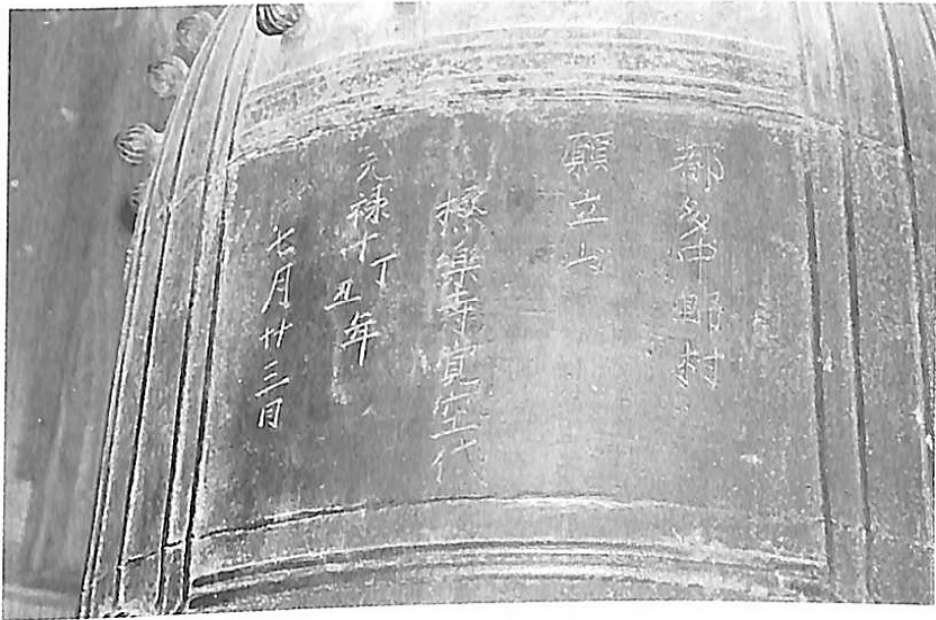 都多中野村
願立山
極樂寺空代
元禄十丁丑年
七月廿三日